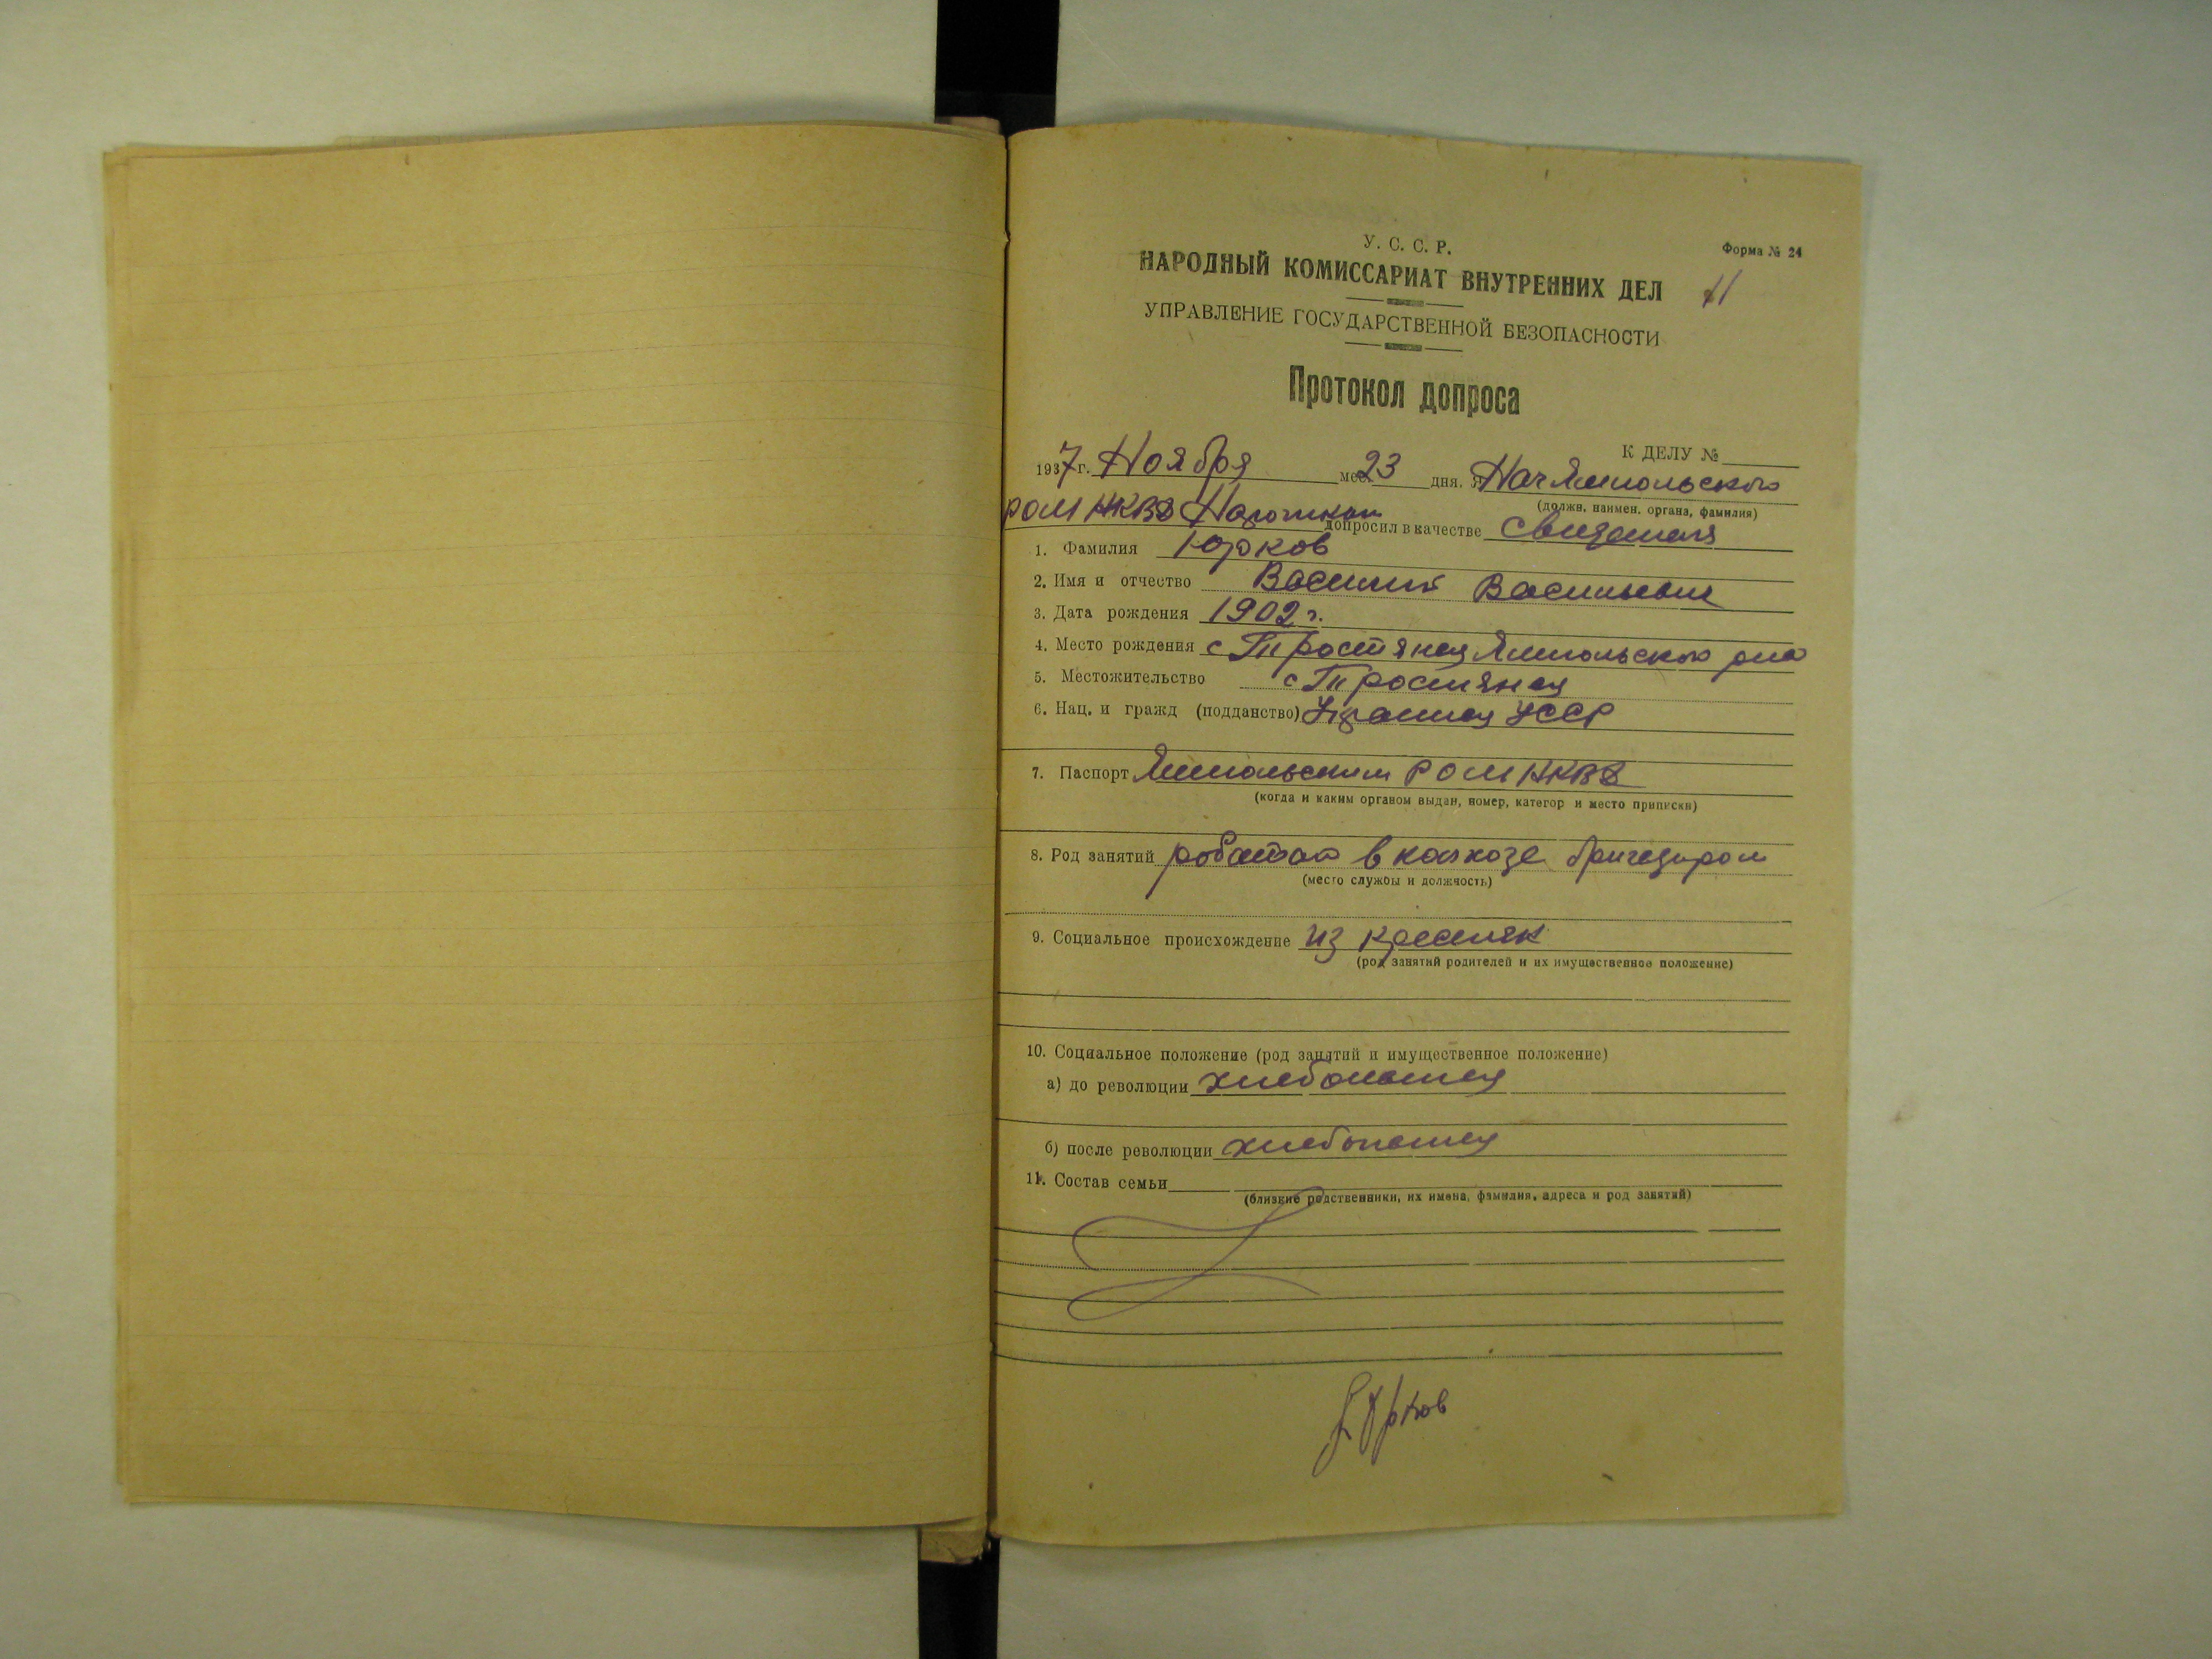 У. С. С. Р.
Форма № 24
НАРОДНЫЙ КОМИССАРИАТ ВНУТРЕННИХ ДЕЛ
11
УПРАВЛЕНИЕ ГОСУДАРСТВЕННОЙ БЕЗОПАСНОСТИ
Протокол допроса
К ДЕЛУ №
1937 г. Ноября мес. 23 дня. Я Нач Ямпольского
(должн. наимен. органа, фамилия)
РОМ НКВД допросил в качестве свидетеля
1. Фамилия Юрков
2. Имя и отчество Василий Васильевич
3. Дата рождения 1902 г.
4. Место рождения с Тростянец Ямпольского рна
5. Местожительство с Тростянец
6. Нац. и гражд (подданство) Украинец УССР
7. Паспорт Ямпольским РОМ НКВД
(когда и каким органом выдан, номер, категор и место приписки)
8. Род занятий работаю в колхозе бригадиром
(место службы и должность)
9. Социальное происхождение из крестьян
(род занятий родителей и их имущественное положение)
10. Социальное положение (род занятий и имущественное положение)
а) до революции хлебопашец
б) после революции хлебопашец
11. Состав семьи
(близкие родственники, их имена, фамилия, адреса и род занятий)
Юрков